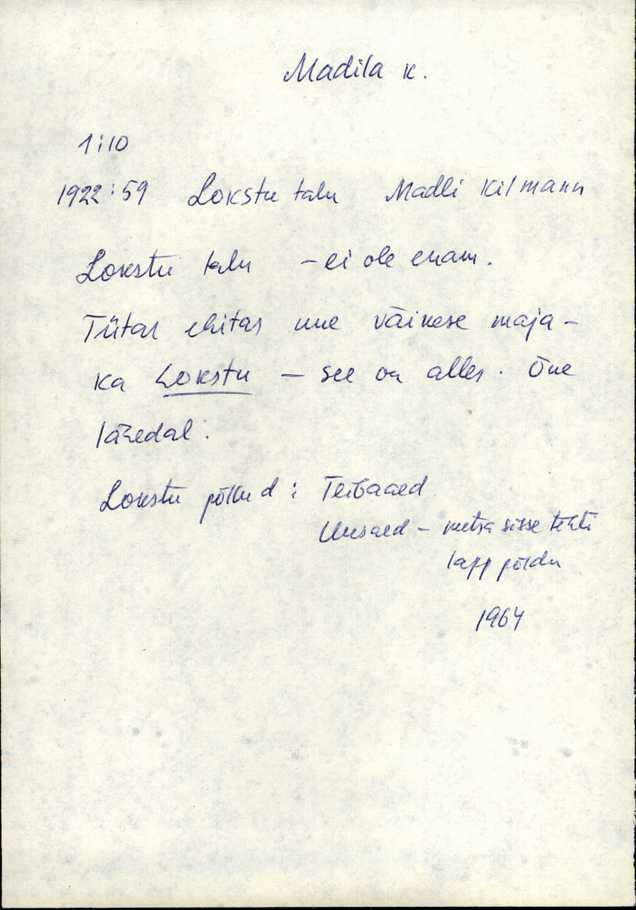 Madila k.
1:10
1922:59 Lokstu talu Madli Kilmann
Lokstu talu - ei ole enam.
Tütar ehitas uue väikese maja -
ka Lokstu - see on alles. Õue
lähedal.
Lokstu põllud: Teibaaed
Uusaed - metsa sisse tehti
lapp põldu
1964